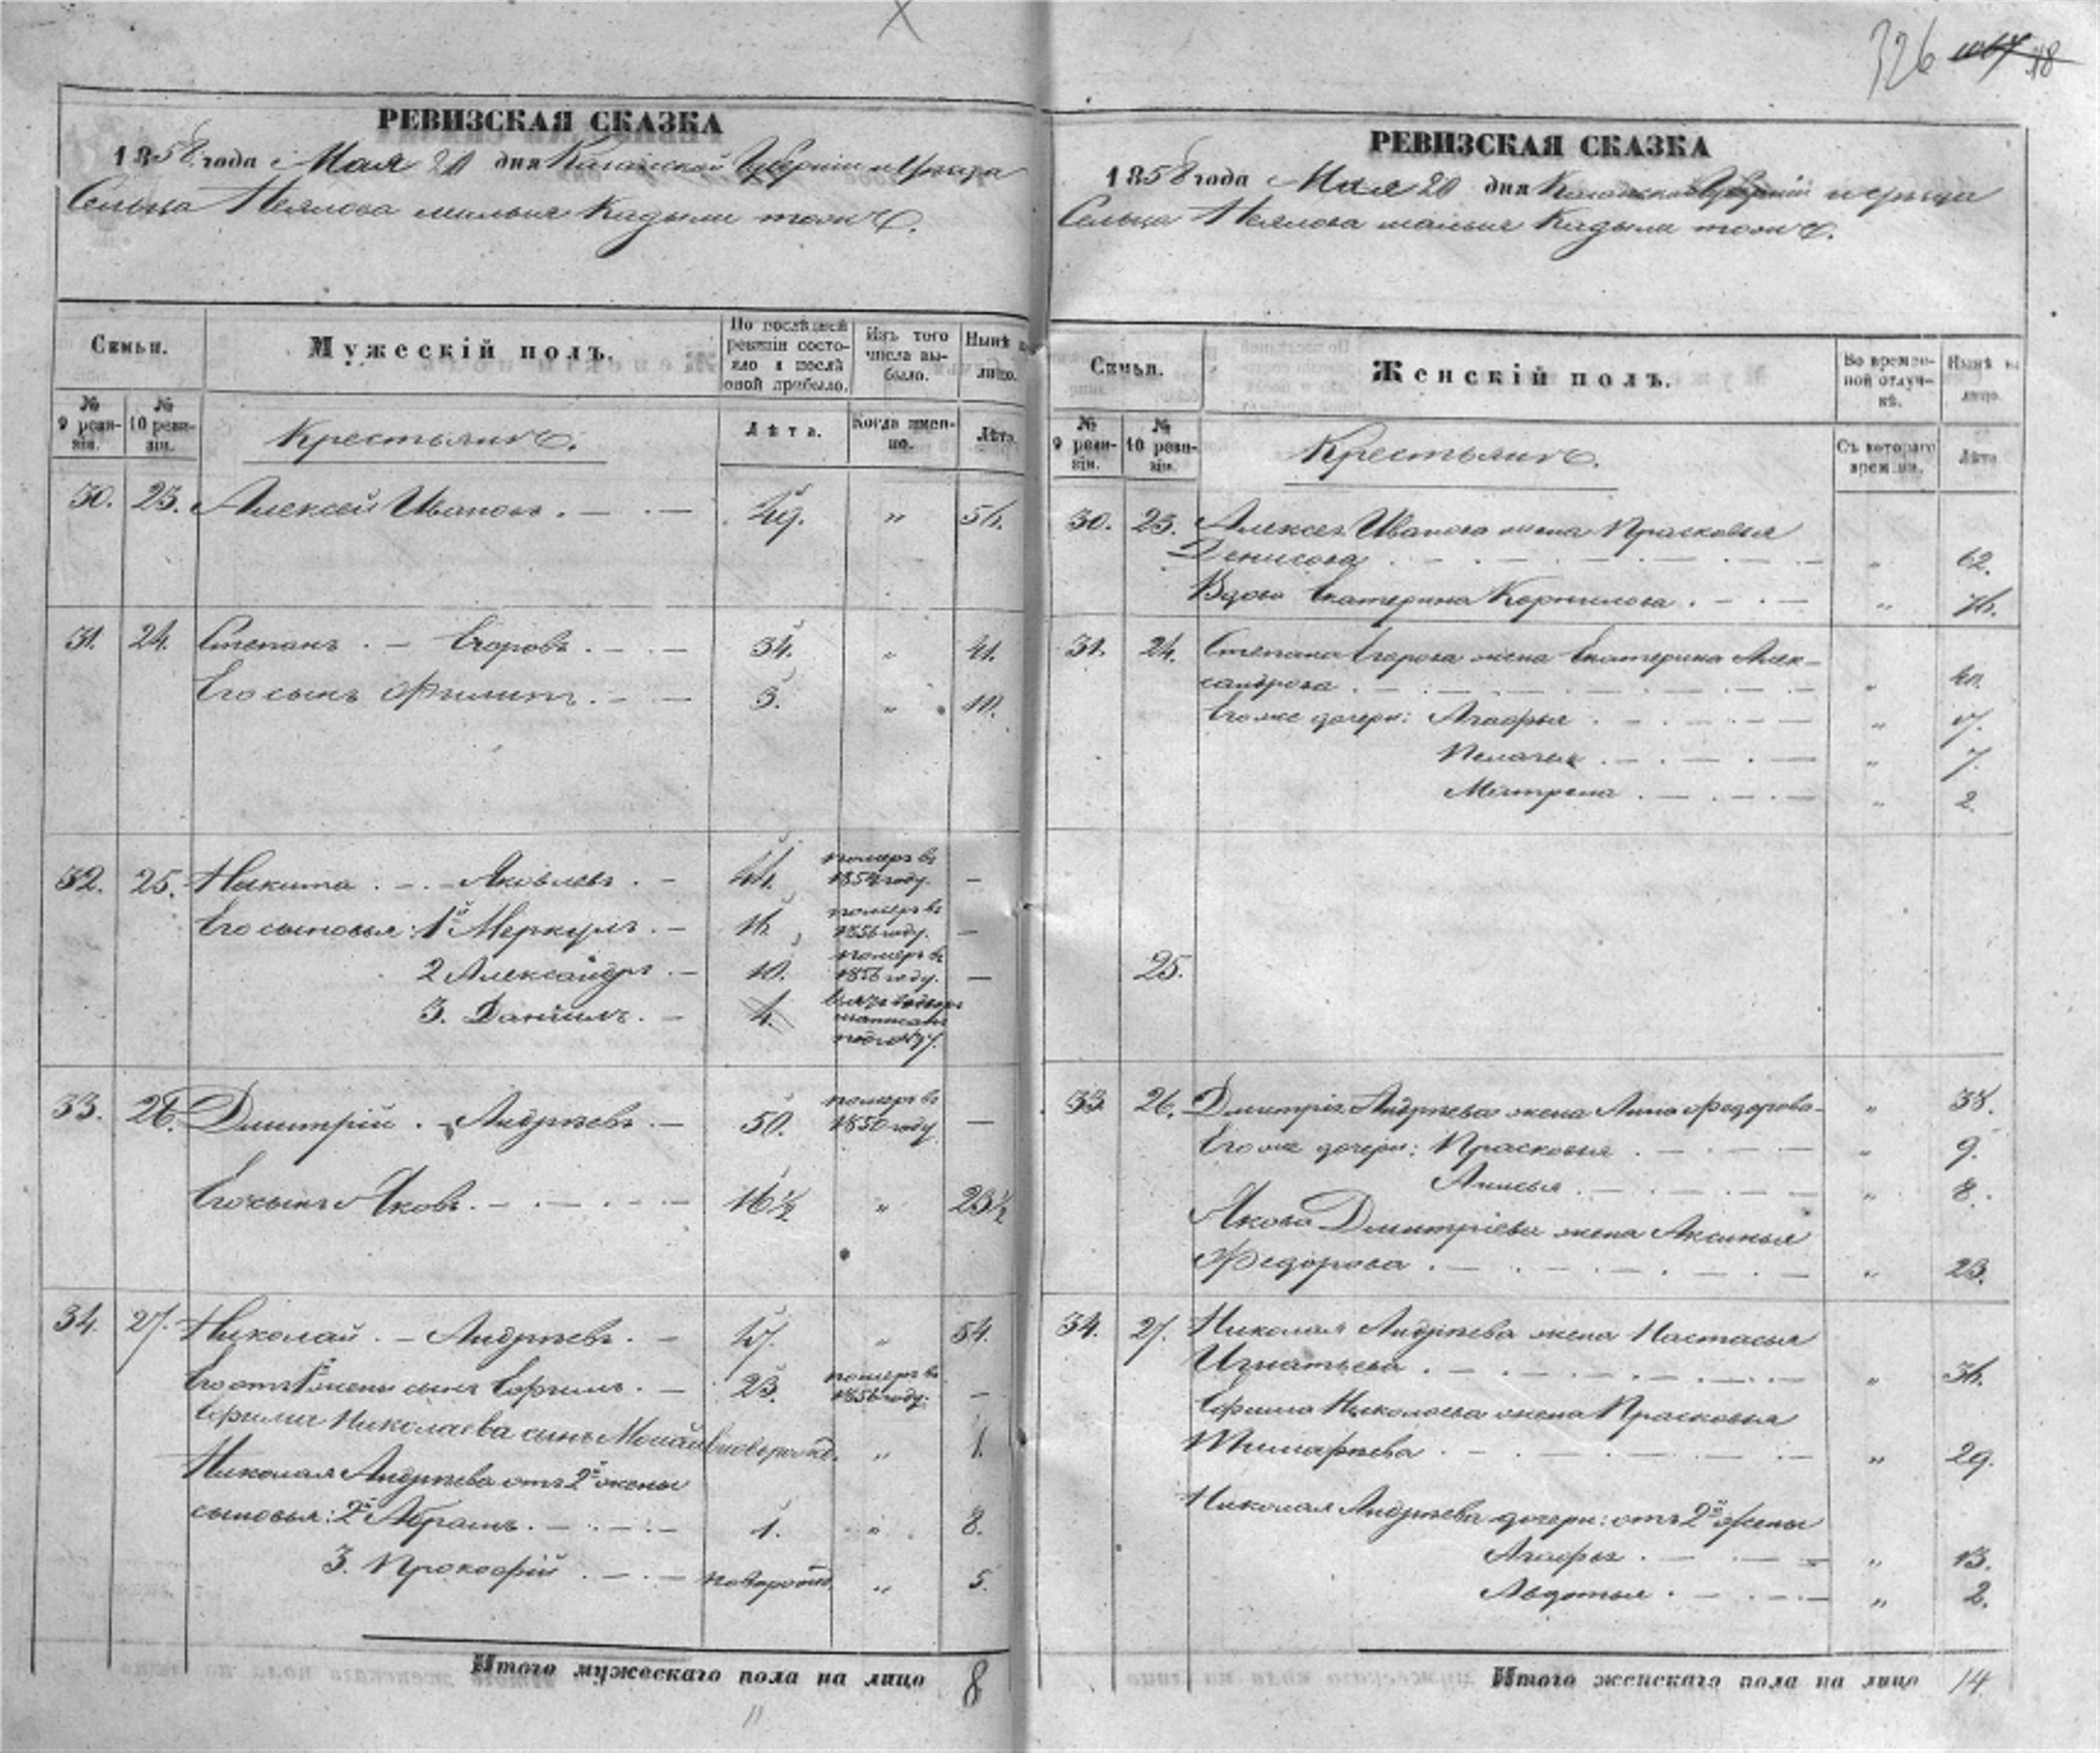 326 118
РЕВИЗСКАЯ СКАЗКА
1858 года Мая 20 дня Казанской Губернии и Уезда
Сельца Неялова Кадыли тожъ.
Семьи.
Мужескій полъ.
По послѣдней ревизіи состояло и послѣ оной прибыло.
Изъ того числа выбыло.
Нынѣ на лицо.
№ 9 ревизіи.
№ 10 ревизіи.
Крестьянъ.
Лѣта.
Когда именно.
Лѣта.
30. 23. Алексей Ивановъ. 49. „ 56.
31. 24. Степанъ Егоровъ. 34. „ 41.
Его сынъ Филипъ. 3. „ 10.
32. 25. Никита Яковлевъ. 44. померъ въ 1854 году. —
Его сыновья: 1й Меркулъ. 16. померъ въ 1856 году. —
2 Александръ. 10. померъ въ 1856 году. —
3. Данiилъ. 4.
33. 26. Дмитрій Андрѣевъ. 50. померъ въ 1856 году —
Его сынъ Яковъ. 16½ „ 23½
34. 27. Николай Андрѣевъ. 47. „ 54.
Его отъ 1й жены сынъ Ефимъ. 23. померъ въ 1856 году. —
Ефима Николаева сынъ новорожд. „ 1.
Николая Андрѣева отъ 2й жены
сыновья: 2й Абрамъ. 1. „ 8.
3. Прокофій новорожд. „ 5.
Итого мужескаго пола на лицо 8
РЕВИЗСКАЯ СКАЗКА
1858 года Мая 20 дня Казанской Губерніи и уезда
Сельца Неялова Кадыли тожъ.
Семьи.
Женскій полъ.
Во временной отлучкѣ.
Нынѣ на лицо.
№ 9 ревизіи.
№ 10 ревизіи.
Крестьянъ.
Съ котораго времени.
Лѣта
30. 23. Алексея Иванова жена Прасковья
Денисова „ 62.
Вдова Екатерина Корнилова. „ 76.
31. 24. Степана Егорова жена Екатерина Алек-
сандрова. „ 40.
Его же дочери: Агафья „ 17.
Пелагея „ 7.
Матрена „ 2.
25.
33 26. Дмитрія Андрѣева жена Анна Федорова „ 38.
Его же дочери: Прасковья „ 9.
Анисья. „ 8.
Якова Дмитріева жена Аксинья
Федорова „ 23.
34. 27. Николая Андрѣева жена Настасья
Игнатьева „ 36.
Ефима Николаева жена Прасковья
Тимофѣева „ 29.
Николая Андрѣева дочери: отъ 2й жены
Агафья „ 13.
Авдотья „ 2.
Итого женскаго пола на лицо 14